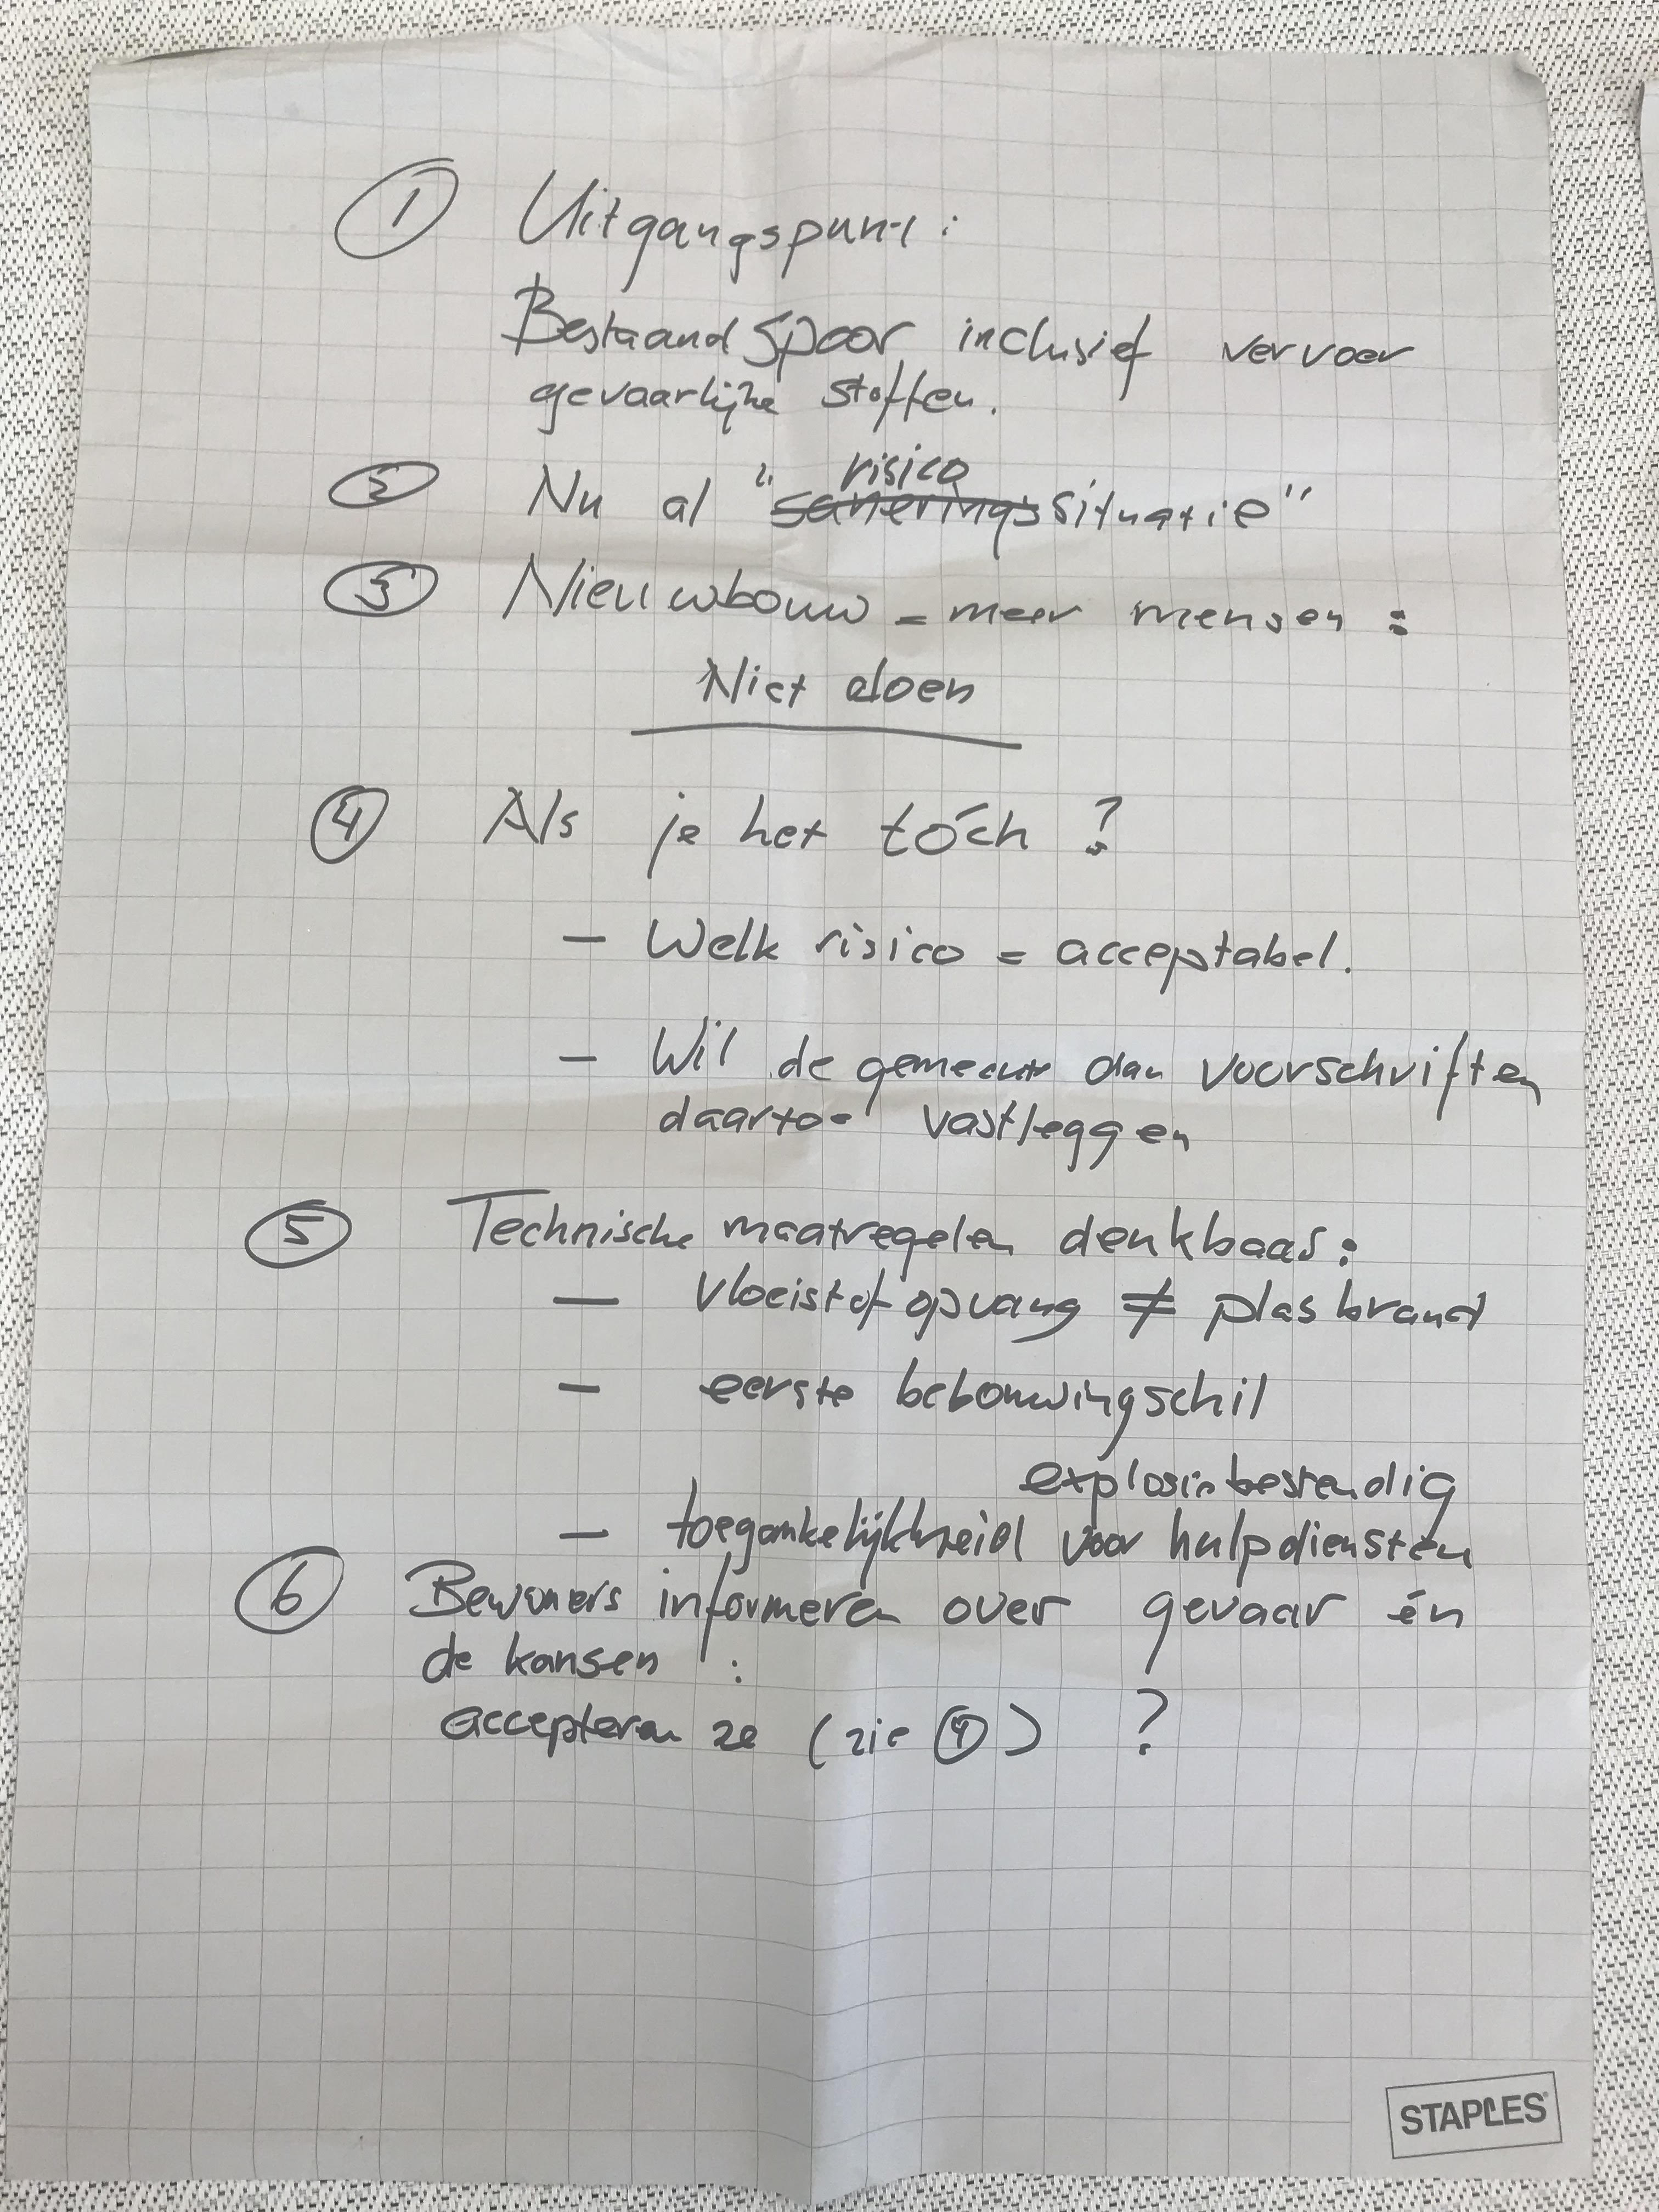 ① Uitgangspunt:
Bestaand Spoor inclusief vervoer
gevaarlijke stoffen.
risico
② Nu al "saneringssituatie"
③ Nieuwbouw = meer mensen :
Niet doen
④ Als je het tóch ?
– Welk risico = acceptabel.
– Wil de gemeente dan voorschriften
daartoe vastleggen
⑤ Technische maatregelen denkbaar:
– Vloeistof opvang ≠ plas brand
– eerste bebouwingschil
explosiebestendig
– toegankelijkheid voor hulpdiensten
⑥ Bewoners informeren over gevaar én
de kansen :
accepteren ze (zie ④) ?
STAPLES